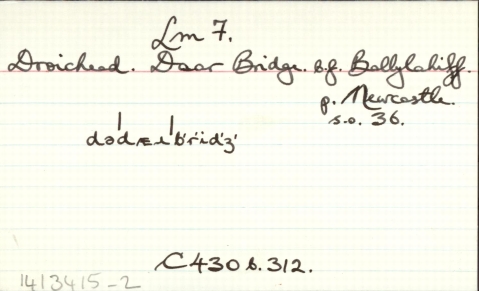 Lm 7.
Droichead. Daar Bridge. b.f. Ballylahiff.
p. Newcastle.
s.o. 36.
C430 b. 312.
1413415-2